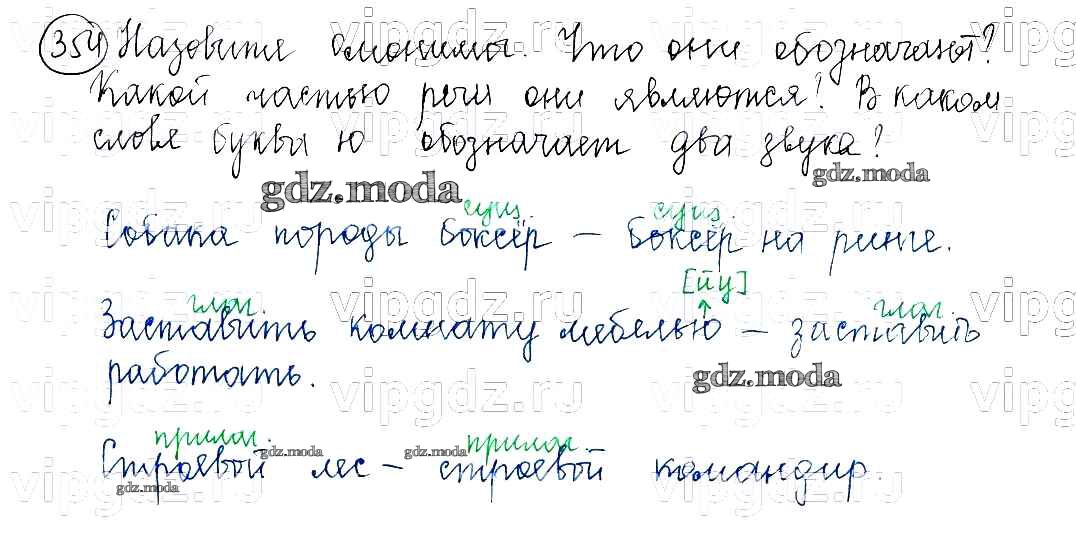 354 Назовите омонимы. Что они обозначают?
Какой частью речи они являются? В каком
слове буквы ю обозначает два звука?
gdz.moda
gdz.moda
сущ. сущ.
Собака породы боксёр – боксёр на ринге.
[йу]
глаг. глаг.
Заставить комнату мебелью – заставить
работать.
gdz.moda
прилаг. прилаг.
gdz.moda gdz.moda
Строевой лес – строевой командир.
gdz.moda